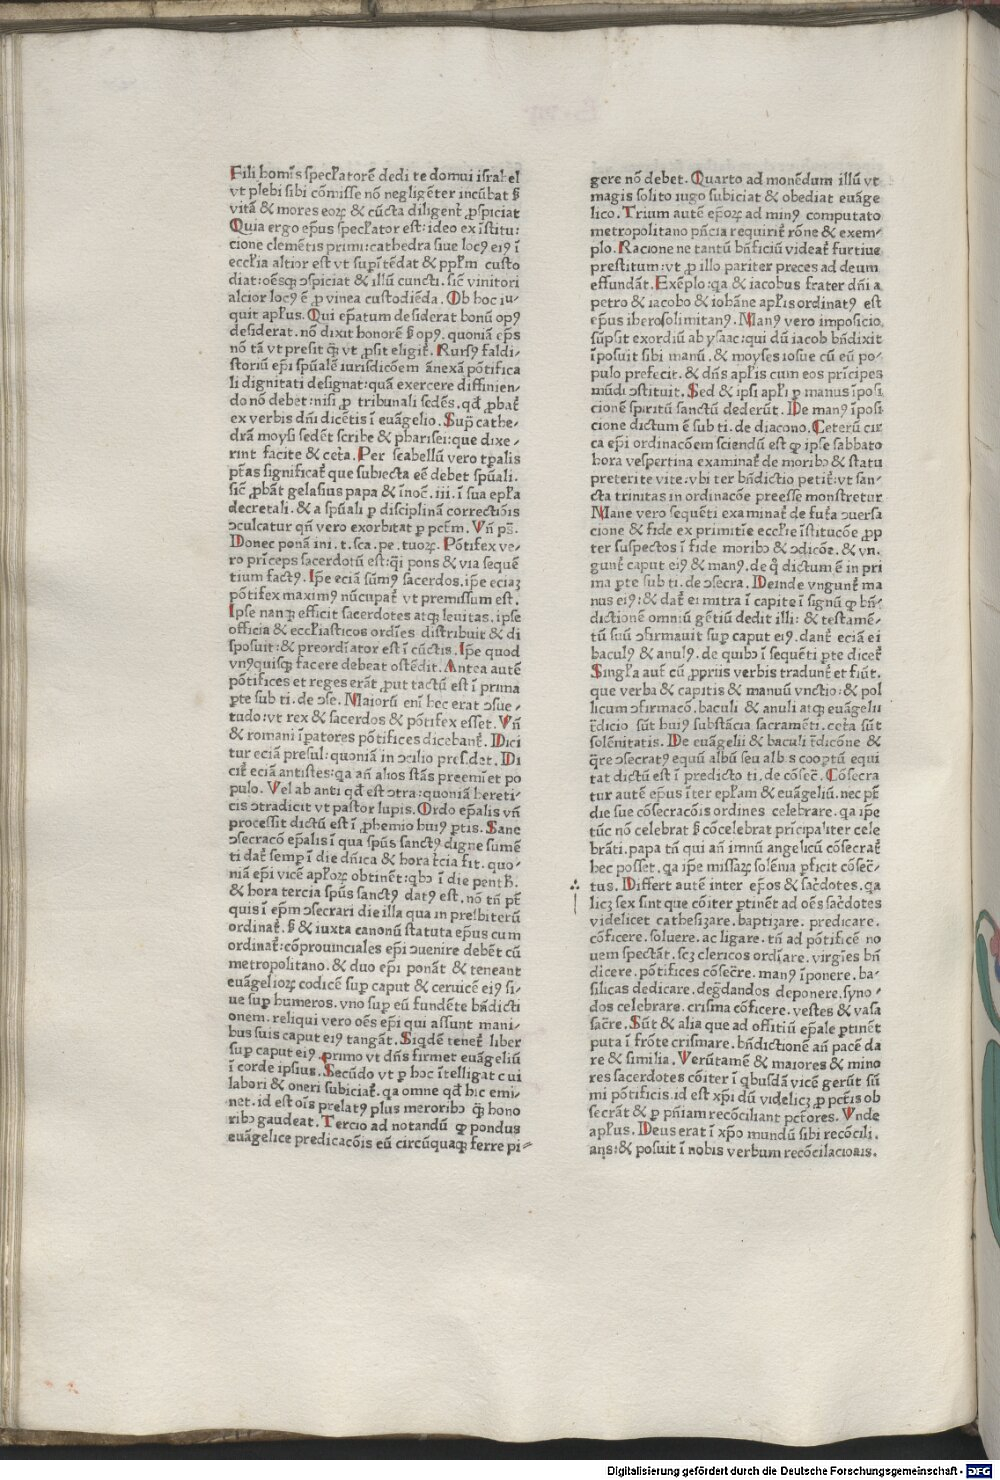 Fili homīs specl̄atorē dedi te domui israhel
vt plebi sibi cōmisse nō negligēter incūbat ꝭ
vitā & mores eoꝝ & cūcta diligent̄ ꝓspiciat
Quia ergo ep̄us specl̄ator est: ideo ex īstitu:
cione clemētis primi: cathedra siue locꝰ eiꝰ ī
eccl̄ia altior est vt supītēdat & ppl̄m custo
diat: oēsqꝫ ↄspiciat & illū cuncti. sic̄ vinitori
alcior locꝰ ē ꝓ vinea custodiēda. Ob hoc in⸗
quit apl̄us. Qui ep̄atum desiderat bonū opꝰ
desiderat. nō dixit honorē ꝭ opꝰ. quoniā ep̄s
nō tā vt presit q̄ꝫ vt ꝓsit eligit᷑. Rursꝰ faldi⸗
storiū ep̄i spūalē iurisdicōem ānexā pōtifica
li dignitati designat: quā exercere diffinien⸗
do nō debet: nisi ꝓ tribunali sedēs. qd̄ ꝓbat᷑
ex verbis dn̄i dicētis ī euāgelio. Sup̄ cathe⸗
drā moysi sedēt scribe & pharisei: que dixe⸗
rint facite & cet̄a. Per scabellū vero tp̄alis
pt̄as significat᷑ que subiecta eē debet spūali.
sic̄ ꝓbāt gelasius papa & īnoc̄. iii. ī sua epl̄a
decretali. & a spūali ꝑ disciplinā correctiōis
ↄculcatur qn̄ vero exorbitat ꝑ pctm̄. Vn̄ ps̄.
Donec ponā ini. t. sca. pe. tuoꝝ. Pōtifex ve⸗
ro prīceps sacerdotū est: q̄i pons & via sequē
tium factꝰ. Ip̄e eciā sūmꝰ sacerdos. ip̄e eciaꝫ
pōtifex maximꝰ nūcupat᷑ vt premissum est.
Ipse nanqꝫ efficit sacerdotes atqꝫ leuitas. ipse
officia & eccl̄iasticos ordīes distribuit & di
sposuit: & preordīator est ī cūctis. Ip̄e quod
vnꝰquisqꝫ facere debeat ostēdit. Antea autē
pōtifices et reges erāt. ꝓut tactū est ī prima
ꝑte sub ti. de ↄse. Maiorū enī hec erat ↄsue⸗
tudo: vt rex & sacerdos & pōtifex esset. Vn̄
& romani īpatores pōtifices dicebant᷑. Dici
tur eciā presul: quoniā in ↄcilio pres̄det. Di
cit᷑ eciā antistes: qa an̄ alios stās preemīet po
pulo. Vel ab anti qd̄ est ↄtra: quoniā hereti⸗
cis ↄtradicit vt pastor lupis. Ordo ep̄alis vn̄
processit dictū est ī ꝓhemio huiꝰ ꝑtis. Sane
ↄsecracō ep̄alis ī qua spūs sanctꝰ digne sumē
ti dat᷑ semp̄ ī die dn̄ica & hora t̄cia fit. quo⸗
niā ep̄i vicē apl̄oꝝ obtinēt: qbꝰ ī die penth̄.
& hora tercia spūs sanctꝰ datꝰ est. nō tn̄ pt̄
quis ī ep̄m ↄsecrari die illa qua in presbiterū
ordinat᷑. ꝭ & iuxta canonū statuta ep̄us cum
ordinat᷑: cōprouinciales ep̄i ↄuenire debēt cū
metropolitano. & duo ep̄i ponāt & teneant
euāgelioꝝ codicē sup̄ caput & ceruicē eiꝰ si⸗
ue sup̄ humeros. vno sup̄ eū fundēte bn̄dicti
onem. reliqui vero oēs ep̄i qui assunt mani⸗
bus suis caput eiꝰ tangāt. Siqdē tenet᷑ liber
sup̄ caput eiꝰ. primo vt dn̄s firmet euāgeliū
ī corde ipsius. Secūdo vt ꝑ hoc ītelligat cui
labori & oneri subiciat᷑. qa omne qd̄ hic emi⸗
net. id est oīs prelatꝰ plus meroribꝰ q̄ꝫ hono
ribꝰ gaudeat. Tercio ad notandū qꝫ pondus
euāgelice predicacōis eū circūquaqꝫ ferre pi⸗
gere nō debet. Quarto ad monēdum illū vt
magis solito iugo subiciat & obediat euāge
lico. Trium autē ep̄oꝝ ad minꝰ computato
metropolitano pn̄cia requirit᷑ rōne & exem⸗
plo. Racione ne tantū bn̄ficiū videat᷑ furtiue
prestitum: vt ꝓ illo pariter preces ad deum
effundāt. Exēplo: qa & iacobus frater dn̄i a
petro & iacobo & iohāne apl̄is ordinatꝰ est
ep̄us iherosolimitanꝰ. Manꝰ vero imposicio
sūpsit exordiū ab ysaac: qui dū iacob bn̄dixit
īposuit sibi manū. & moyses iosue cū eū po⸗
pulo prefecit. & dn̄s apl̄is cum eos prīcipes
mūdi ↄstituit. Sed & ipsi apl̄i ꝑ manus īposi
cionē spiritū sanctū dederūt. De manꝰ īposi
cione dictum ē sub ti. de diacono. Ceterū cir
ca ep̄i ordinacōem sciendū est qꝫ ipse sabbato
hora vespertina examinat᷑ de moribꝰ & statu
preterite vite. vbi ter bn̄dictio petit᷑: vt san⸗
cta trinitas in ordinacōe preesse monstretur
Mane vero sequēti examinat᷑ de fut̄a ↄuersa
cione & fide ex primitie eccl̄ie īstitucōe ꝓp
ter suspectos ī fide moribꝰ & ↄdicōe. & vn.
gunt᷑ caput eiꝰ & manꝰ. de q̄ dictum ē in pri
ma ꝑte sub ti. de ↄsecra. Deinde vngunt᷑ ma
nus eiꝰ: & dat᷑ ei mitra ī capite ī signū qꝫ bn̄⸗
dictionē omniū gētiū dedit illi: & testamē⸗
tū suū ↄfirmauit sup̄ caput eiꝰ. dant᷑ eciā ei
baculꝰ & anulꝰ. de quibꝰ ī sequēti ꝑte dicet᷑
Singl̄a aut̄ cū ꝓpriis verbis tradunt᷑ et fiūt.
que verba & capitis & manuū vnctio: & pol
licum ↄfirmacō. baculi & anuli atqꝫ euāgelii
t̄dicio sūt huiꝰ substācia sacramēti. cet̄a sūt
solēnitatis. De euāgelii & baculi t̄dicōne &
q̄re ↄsecratꝰ equū albū seu albis coop̄tū equi
tat dictū est ī predicto ti. de cōsec̄. Cōsecra
tur autē ep̄us īter epl̄am & euāgeliū. nec pt̄
die sue cōsecracōis ordines celebrare. qa ip̄e
tūc nō celebrat ꝭ cōcelebrat prīcipaliter cele
brāti. papa tn̄ qui an̄ imnū angelicū cōsecrat᷑
hec posset. qa ip̄e missaꝝ solēnia ꝑficit cōsec̄⸗
tus. Differt autē inter ep̄os & sac̄dotes. qa
licꝫ sex sint que cōiter ꝑtinēt ad oēs sac̄dotes
videlicet cathesizare. baptizare. predicare.
cōficere. soluere. ac ligare. tn̄ ad pōtificē no
uem spectāt. scꝫ clericos ordīare. virgīes bn̄
dicere. pōtifices cōsec̄re. manꝰ īponere. ba⸗
silicas dedicare. deḡdandos deponere. syno⸗
dos celebrare. crisma cōficere. vestes & vasa
sac̄re. Sūt & alia que ad offitiū ep̄ale ꝑtinēt
puta ī frōte crismare. bn̄dictionē an̄ pacē da
re & similia. Verūtamē & maiores & mino
res sacerdotes cōiter ī qbusdā vicē gerūt sū
mi pōtificis. id est xp̄i dū videlicꝫ ꝓ pctīs ob
secrāt & ꝑ pn̄iam recōciliant pctōres. Vnde
apl̄us. Deus erat ī xp̄o mundū sibi recōcili.
ans: & posuit ī nobis verbum recōciliacionis.
Digitalisierung gefördert durch die Deutsche Forschungsgemeinschaft - DFG